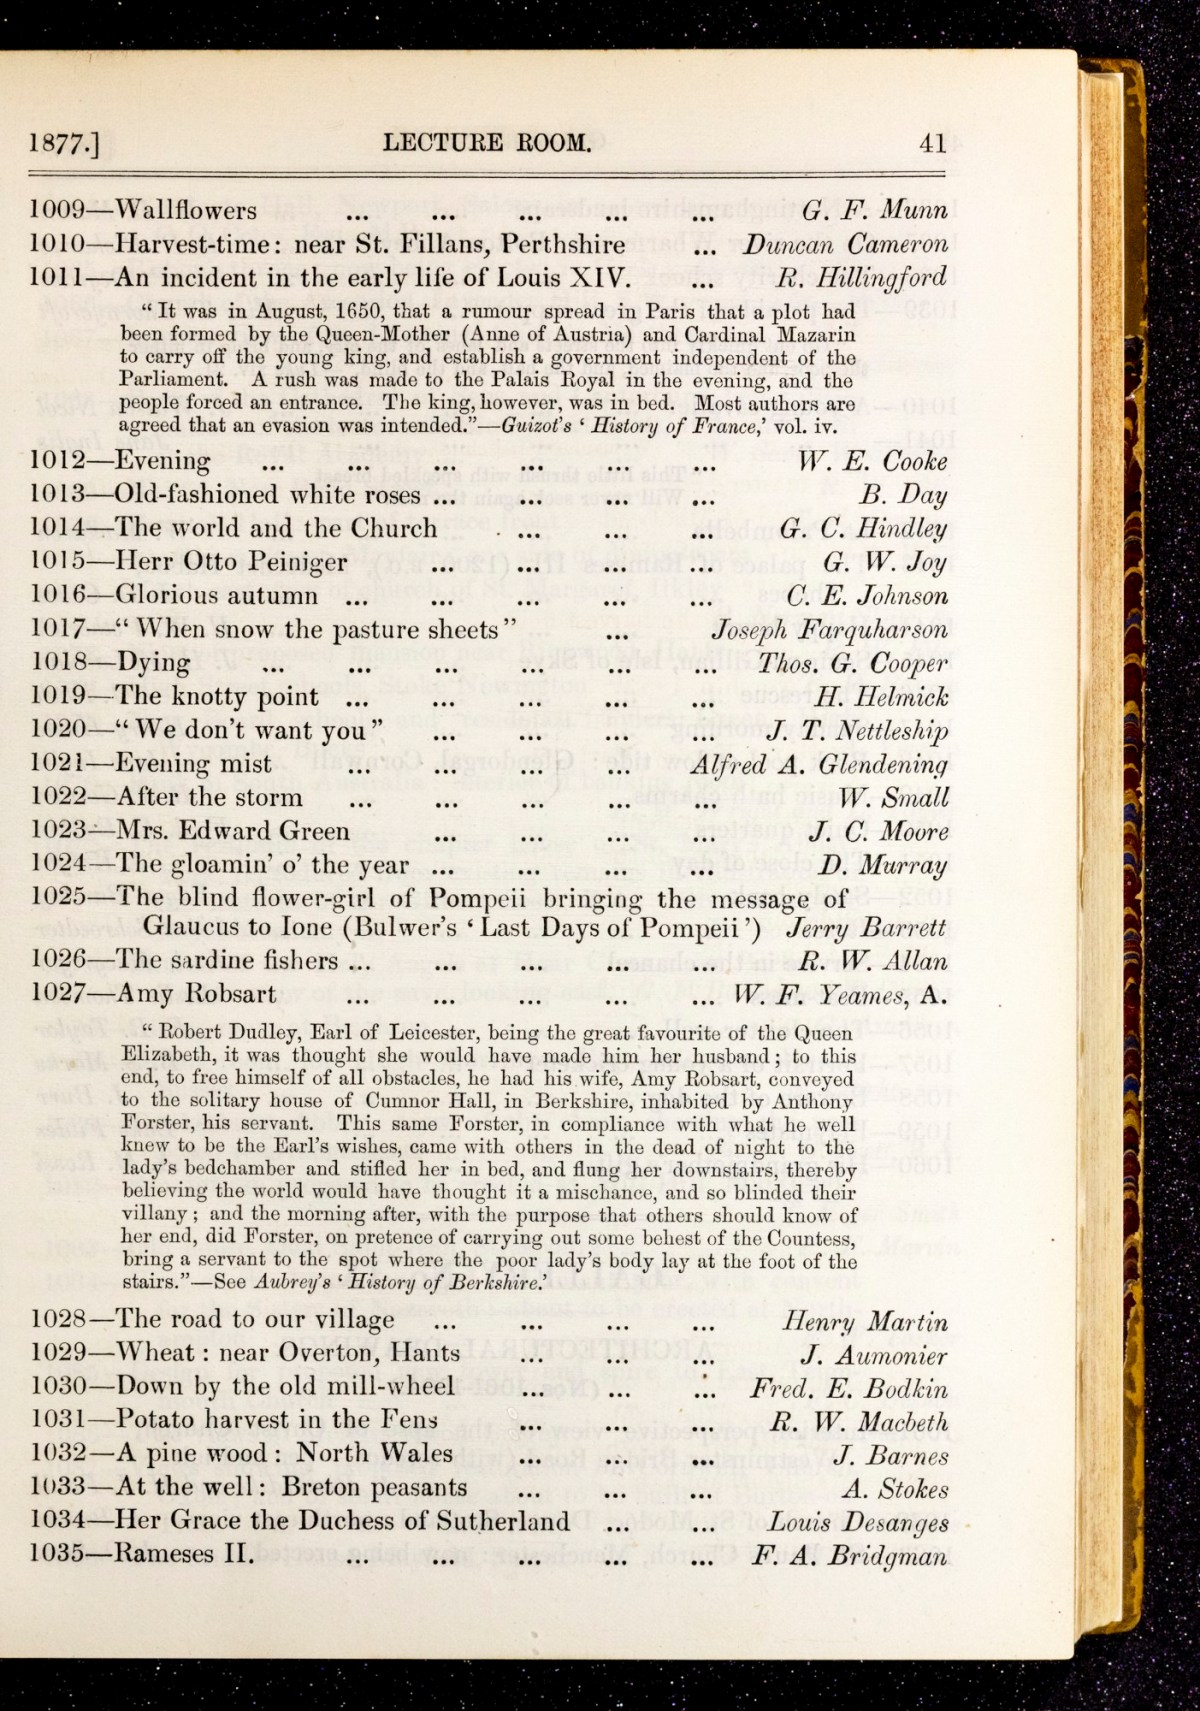 1877.] LECTURE ROOM. 41
1009—Wallflowers ... ... ... ... ... G. F. Munn
1010—Harvest-time: near St. Fillans, Perthshire ... Duncan Cameron
1011—An incident in the early life of Louis XIV. ... R. Hillingford
“It was in August, 1650, that a rumour spread in Paris that a plot had
been formed by the Queen-Mother (Anne of Austria) and Cardinal Mazarin
to carry off the young king, and establish a government independent of the
Parliament. A rush was made to the Palais Royal in the evening, and the
people forced an entrance. The king, however, was in bed. Most authors are
agreed that an evasion was intended.”—Guizot's ‘History of France,’ vol. iv.
1012—Evening ... ... ... ... ... ... W. E. Cooke
1013—Old-fashioned white roses ... ... ... ... B. Day
1014—The world and the Church ... ... ... G. C. Hindley
1015—Herr Otto Peiniger ... ... ... ... G. W. Joy
1016—Glorious autumn ... ... ... ... ... C. E. Johnson
1017—“When snow the pasture sheets” ... Joseph Farquharson
1018—Dying ... ... ... ... ... ... Thos. G. Cooper
1019—The knotty point ... ... ... ... ... H. Helmick
1020—“We don't want you” ... ... ... ... J. T. Nettleship
1021—Evening mist ... ... ... ... Alfred A. Glendening
1022—After the storm ... ... ... ... ... W. Small
1023—Mrs. Edward Green ... ... ... ... J. C. Moore
1024—The gloamin' o' the year ... ... ... ... D. Murray
1025—The blind flower-girl of Pompeii bringing the message of
Glaucus to Ione (Bulwer's ‘Last Days of Pompeii’) Jerry Barrett
1026—The sardine fishers ... ... ... ... ... R. W. Allan
1027—Amy Robsart ... ... ... ... ... W. F. Yeames, A.
“Robert Dudley, Earl of Leicester, being the great favourite of the Queen
Elizabeth, it was thought she would have made him her husband; to this
end, to free himself of all obstacles, he had his wife, Amy Robsart, conveyed
to the solitary house of Cumnor Hall, in Berkshire, inhabited by Anthony
Forster, his servant. This same Forster, in compliance with what he well
knew to be the Earl's wishes, came with others in the dead of night to the
lady's bedchamber and stifled her in bed, and flung her downstairs, thereby
believing the world would have thought it a mischance, and so blinded their
villany; and the morning after, with the purpose that others should know of
her end, did Forster, on pretence of carrying out some behest of the Countess,
bring a servant to the spot where the poor lady's body lay at the foot of the
stairs.”—See Aubrey's ‘History of Berkshire.’
1028—The road to our village ... ... ... ... Henry Martin
1029—Wheat: near Overton, Hants ... ... ... J. Aumonier
1030—Down by the old mill-wheel ... ... ... Fred. E. Bodkin
1031—Potato harvest in the Fens ... ... ... R. W. Macbeth
1032—A pine wood: North Wales ... ... ... J. Barnes
1033—At the well: Breton peasants ... ... ... A. Stokes
1034—Her Grace the Duchess of Sutherland ... ... Louis Desanges
1035—Rameses II. ... ... ... ... ... F. A. Bridgman